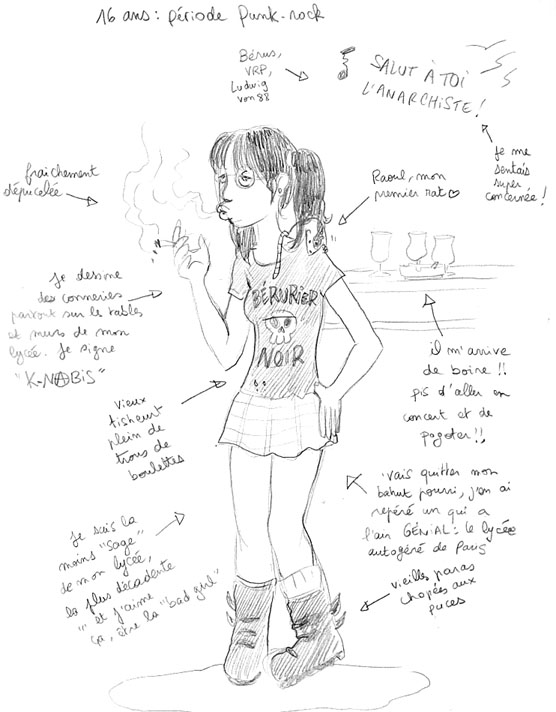 16 ans : période Punk-rock
Bérus,
VRP,
Ludwig
von 88
SALUT À TOI
L'ANARCHISTE !
Je me
sentais
super
concernée !
fraichement
dépucelée
Raoul, mon
premier rat
Je dessine
des conneries
partout sur le tables
et murs de mon
lycée. Je signe
"K-NABIS"
BÉRURIER
NOIR
il m'arrive
de boire !!
pis d'aller en
concert et de
pogoter !!
vieux
tisheurt
plein de
trous de
boulettes
'vais quitter mon
bahut pourri, j'en ai
repéré un qui a
l'air GÉNIAL : le lycée
autogéré de Paris
Je suis la
moins "sage"
de mon lycée,
la plus décadente
... et j'aime
ça, être la "bad girl"
vieilles paras
chopées aux
puces